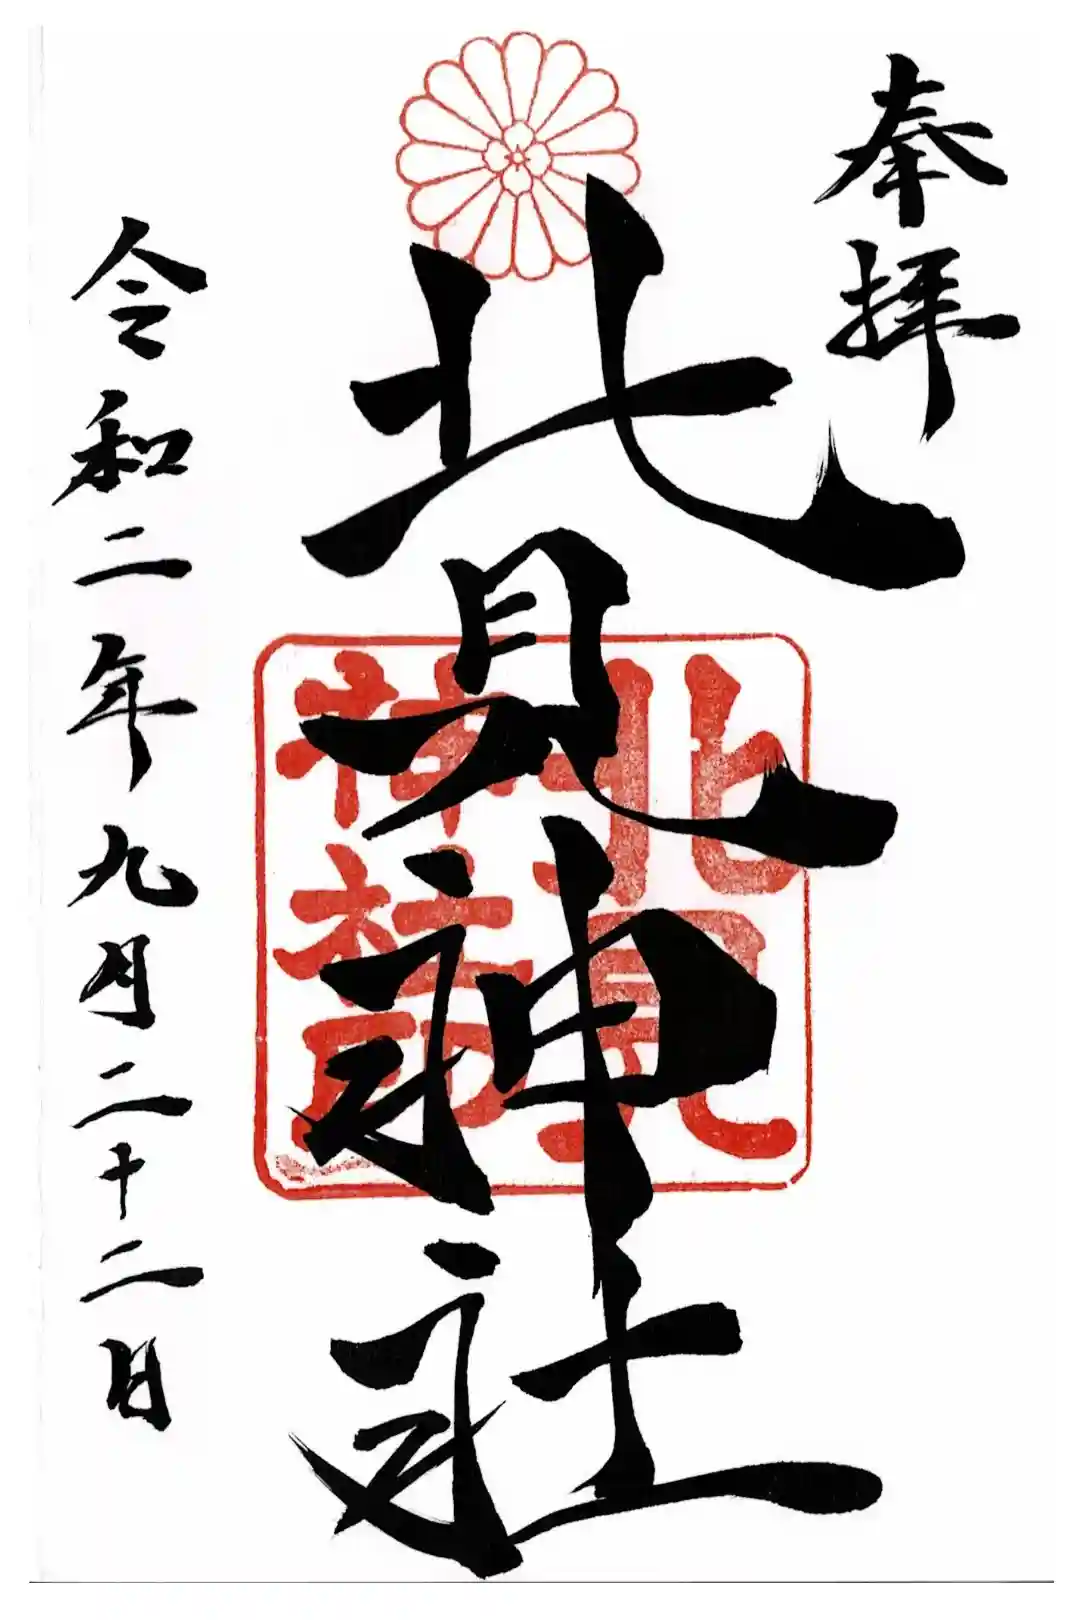 奉拝
北見神社
北見
神社印
令和二年九月二十二日